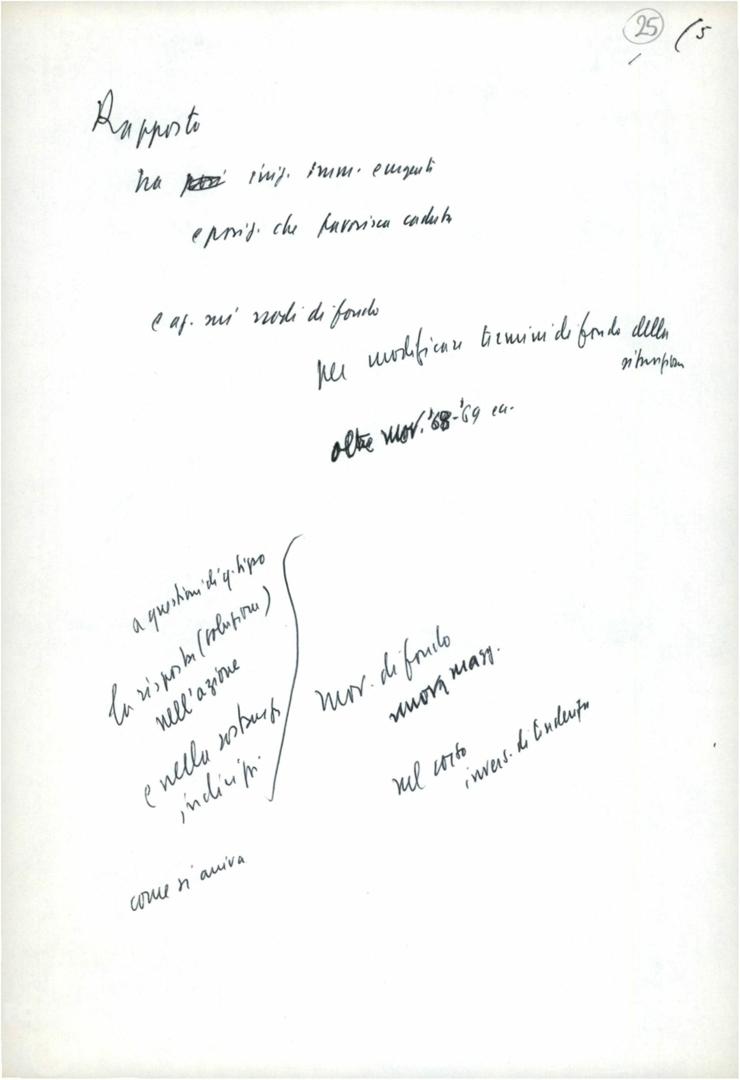 25 (5
Rapporto
tra iniz. imm. emergenti
e posiz. che favorisca caduta
e az. sui nodi di fondo
per modificare termini di fondo della
situazione
oltre mov. '68-'69 ecc.
a questioni di q. tipo
la risposta (soluzione)
nell'azione
e nella
indirizzi
mov. di fondo
nuova magg.
nel corto
invers. di tendenza
come si arriva